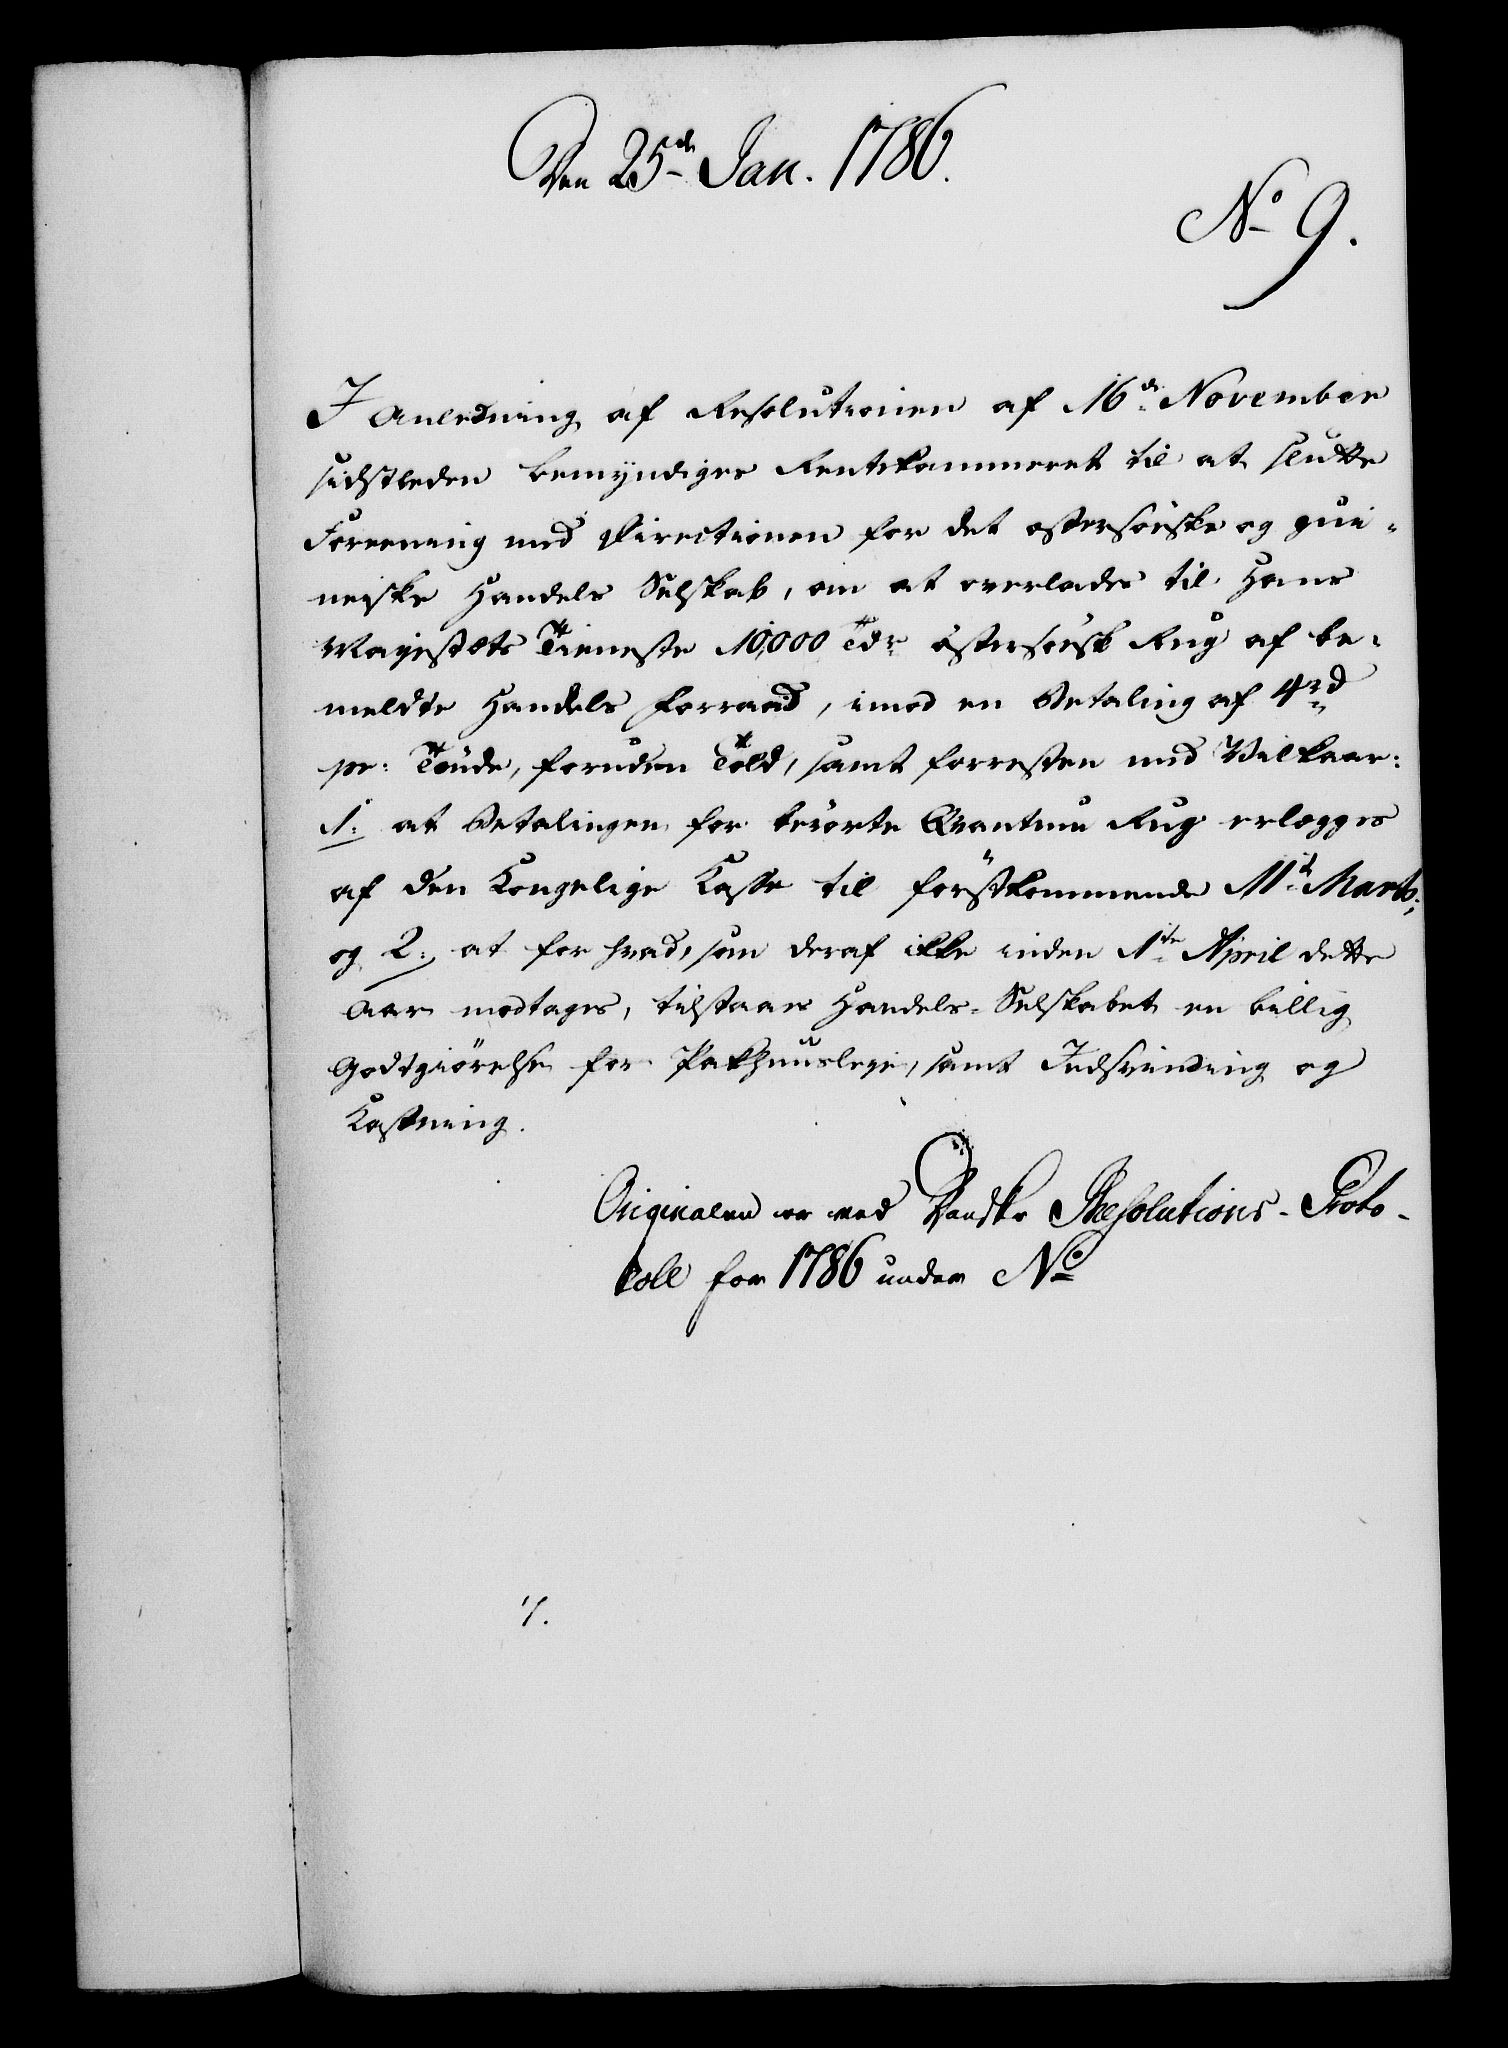 Den 25de Jan. 1786.
No 9.
I Anledning af Resolutionen af 16de November
sidstleden bemyndiges Rentekammeret til at slutte
Foreening med Directionen for det østersøiske og gui-
neiske Handels Selskab, om at overlade til Hans
Majestæts Tieneste 10,000 Tdr østersøisk Rug af be-
meldte Handels Forraad, imod en Betaling af 4 rd
pr: Tønde, foruden Told, samt forresten med Vilkaar:
1: at Betalingen for berørte Qvantum Rug erlægges
af den Kongelige Kasse til førstkommende 11te Marts;
og 2: at for hvad, som deraf ikke inden 1te April dette
Aar modtages, tilstaaes Handels-Selskabet en billig
Godtgiørelse for Pakhuusleje, samt Indsvinding og
Kastning.
Originalen er ved Danske Resolutions-Proto-
coll for 1786 under No